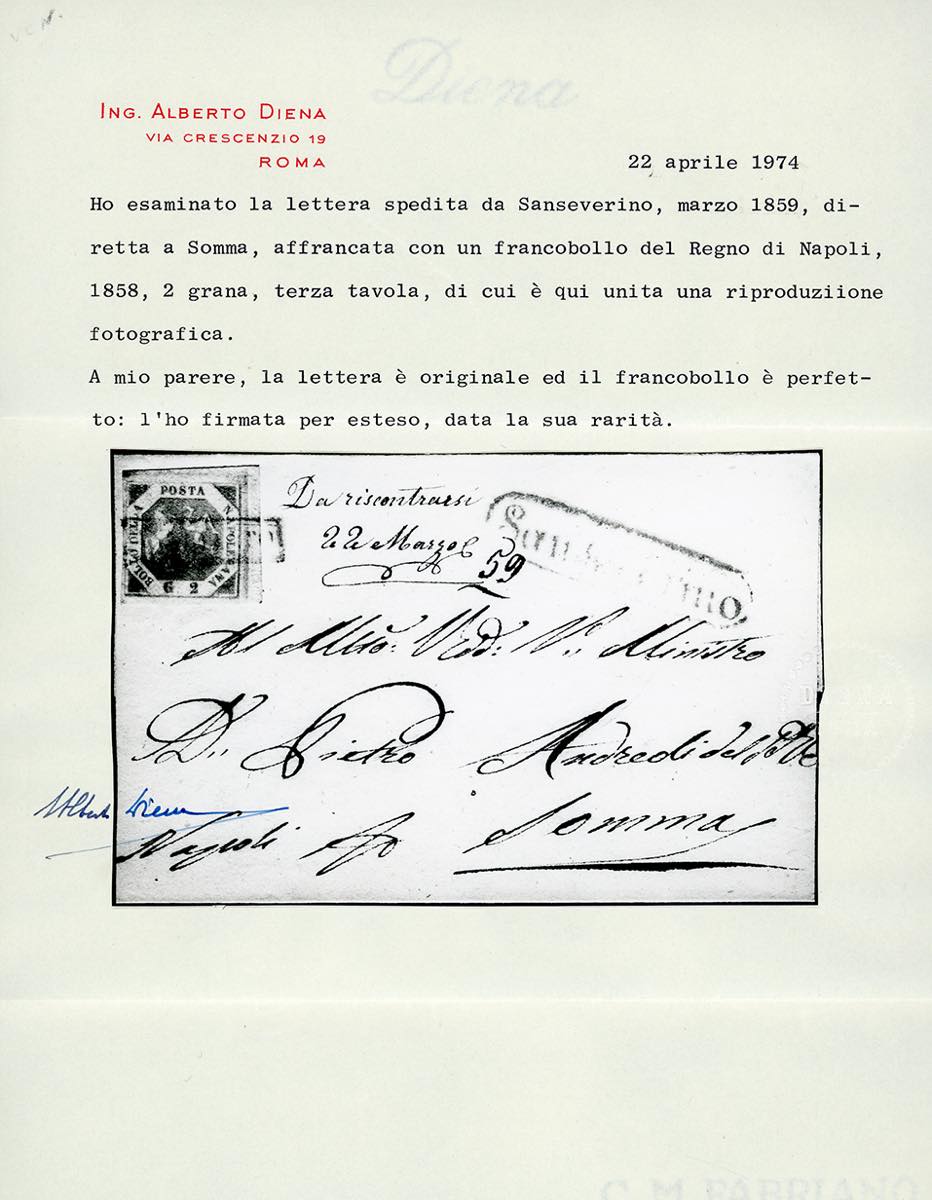 Diena
ING. ALBERTO DIENA
VIA CRESCENZIO 19
ROMA
22 aprile 1974
Ho esaminato la lettera spedita da Sanseverino, marzo 1859, di-
retta a Somma, affrancata con un francobollo del Regno di Napoli,
1858, 2 grana, terza tavola, di cui è qui unita una riproduziione
fotografica.
A mio parere, la lettera è originale ed il francobollo è perfet-
to: l'ho firmata per esteso, data la sua rarità.
POSTA
NAPOLETANA
BOLLO DELLA
G 2
Da riscontrarsi
22 Marzo
59
Al
Ministro
D. Pietro
Somma
Napoli
Alberto Diena
C. M. FABRIANO